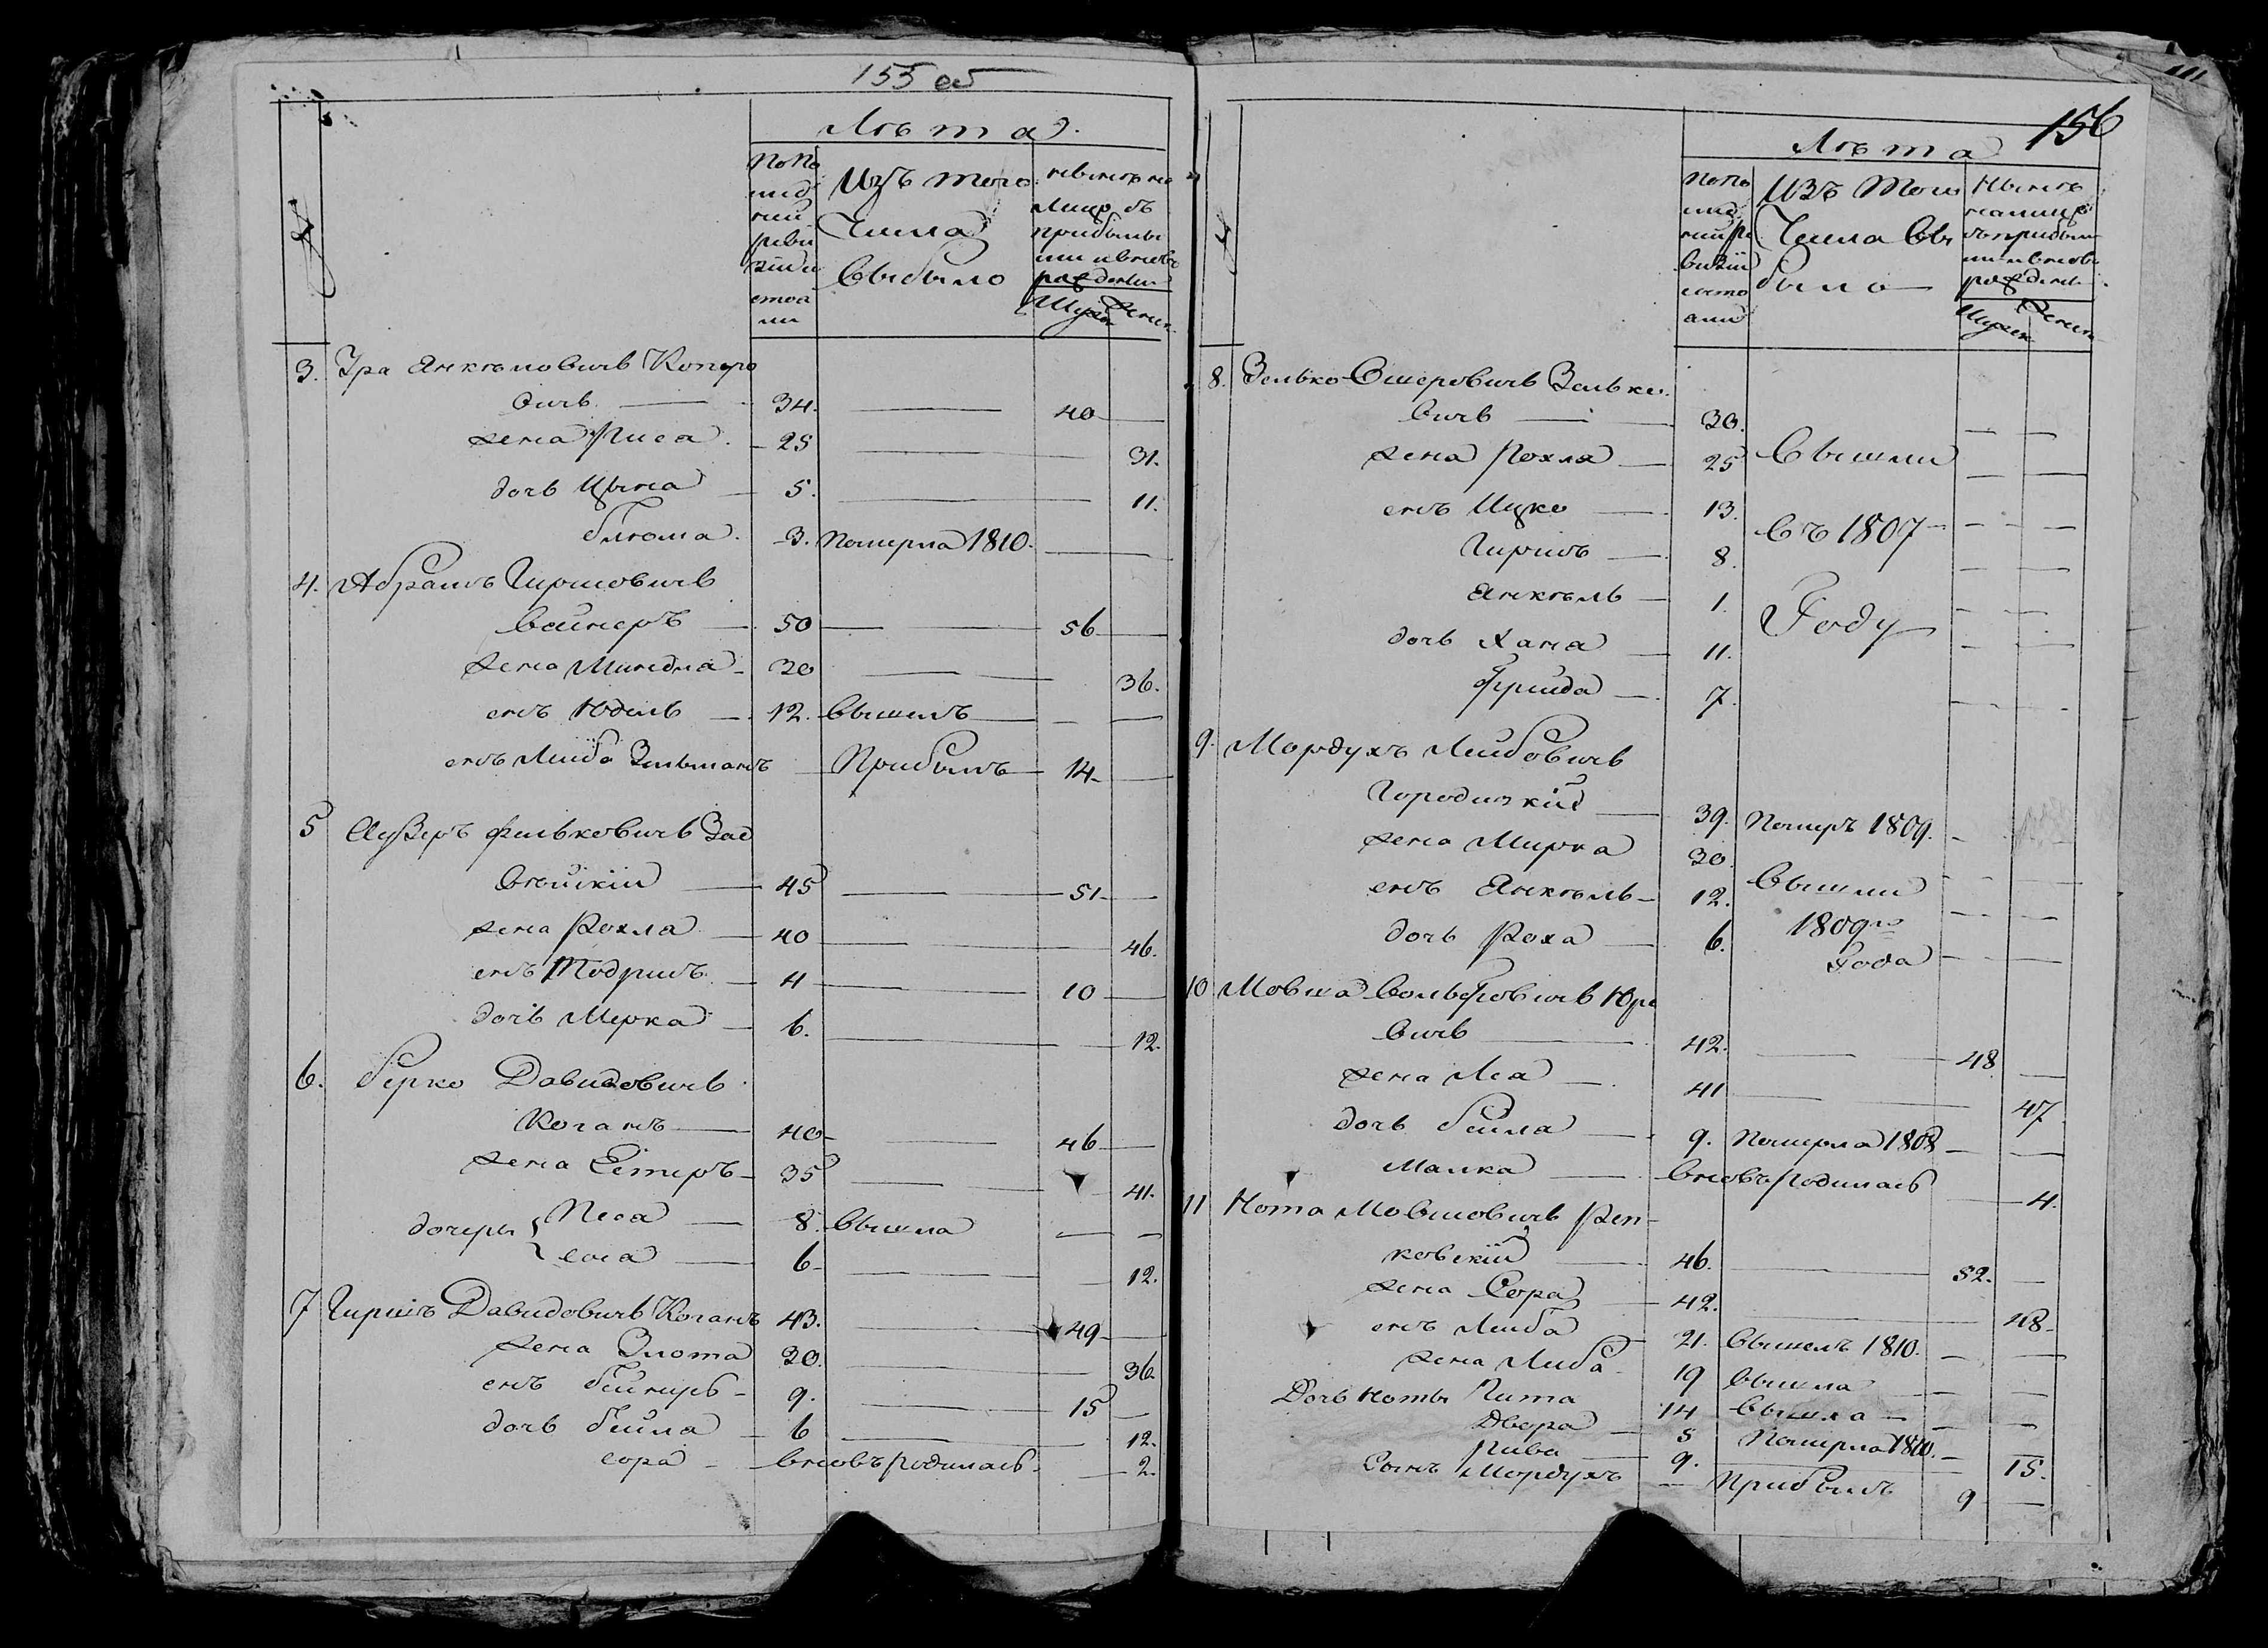 155 об
Лѣта
№
По по
слѣд
ней
реви
зіи со
стоя
ли
Изъ того
Числа
Выбыло
нынѣ на
лицо съ
прибылы
ми и вновь
рожденны
Мужск Женск
3. Янкѣловичъ
вичъ — 34. — 40 —
жена 25 — 31.
дочь Цына — 5. — 11.
Блюма. 3. Померла 1810. —
4. Абрамъ Гиршовичъ
Вайнеръ — 50 — 56 —
жена Миндла — 30 — 36.
сынъ Юдель — 12. Вышелъ — —
сынъ Лейба Зельманъ — Прибылъ — 14 —
5 Фильковичъ Зас
45 — 51 —
жена Рохла — 40 — 46.
сынъ Тодрисъ — 4 — 10 —
дочь Мерка — 6. — 12.
6. Берко Давидовичъ
Коганъ — 40 — 46 —
жена Естеръ — 35 — 41.
дочери Песа — 8. Вышла — —
6 — 12.
7 Гиршъ Давидовичъ Коганъ 43. — 49 —
жена Злота 30. — 36.
сынъ 9. — 15 —
дочь Бейла — 6 — 12.
сора — вновь родилась — 2.
156
Лѣта
№
По по
слѣд
ней ре
визіи
состо
яли
Изъ того
Числа Вы
было
Нынѣ
налицо
съ прибылы
ми и вновь
рожденн
Мужск Женск
8. Зелько Ошеровичъ Зелько
вичъ — 30. — —
жена Рохля — 25 Вышли — —
сынъ Ицко — 13. — —
Гиршъ — 8. Въ 1807 — —
Янкѣль — 1. — —
дочь Хана — 11. Году — —
Фрейда — 7. — —
9. Мордухъ Лейбовичъ
Городискій — 39. Померъ 1809. —
жена Мирка 30. Вышли — —
сынъ Янкѣль — 12. 1809го — —
дочь Роха — 6. Года — —
10 Мовша Вольфовичъ Юре
вичъ — 42. — 48 —
жена Леа — 41 — 47
дочь Бейла — 9. Померла 1808 — —
Малка — вновь родилась — 4.
11 Нота Мовшовичъ Реп-
ковскій — 46. — 52. —
жена Сора — 42. — 48 —
сынъ Лейба 21. Вышелъ 1810. — —
жена Либа 19 Вышла — —
Дочь Ноты Гита 14 Вышла — —
Двера — 5 Померла 1810. —
Рива — 9. — 15.
Сынъ Мордухъ — Прибылъ 9 —